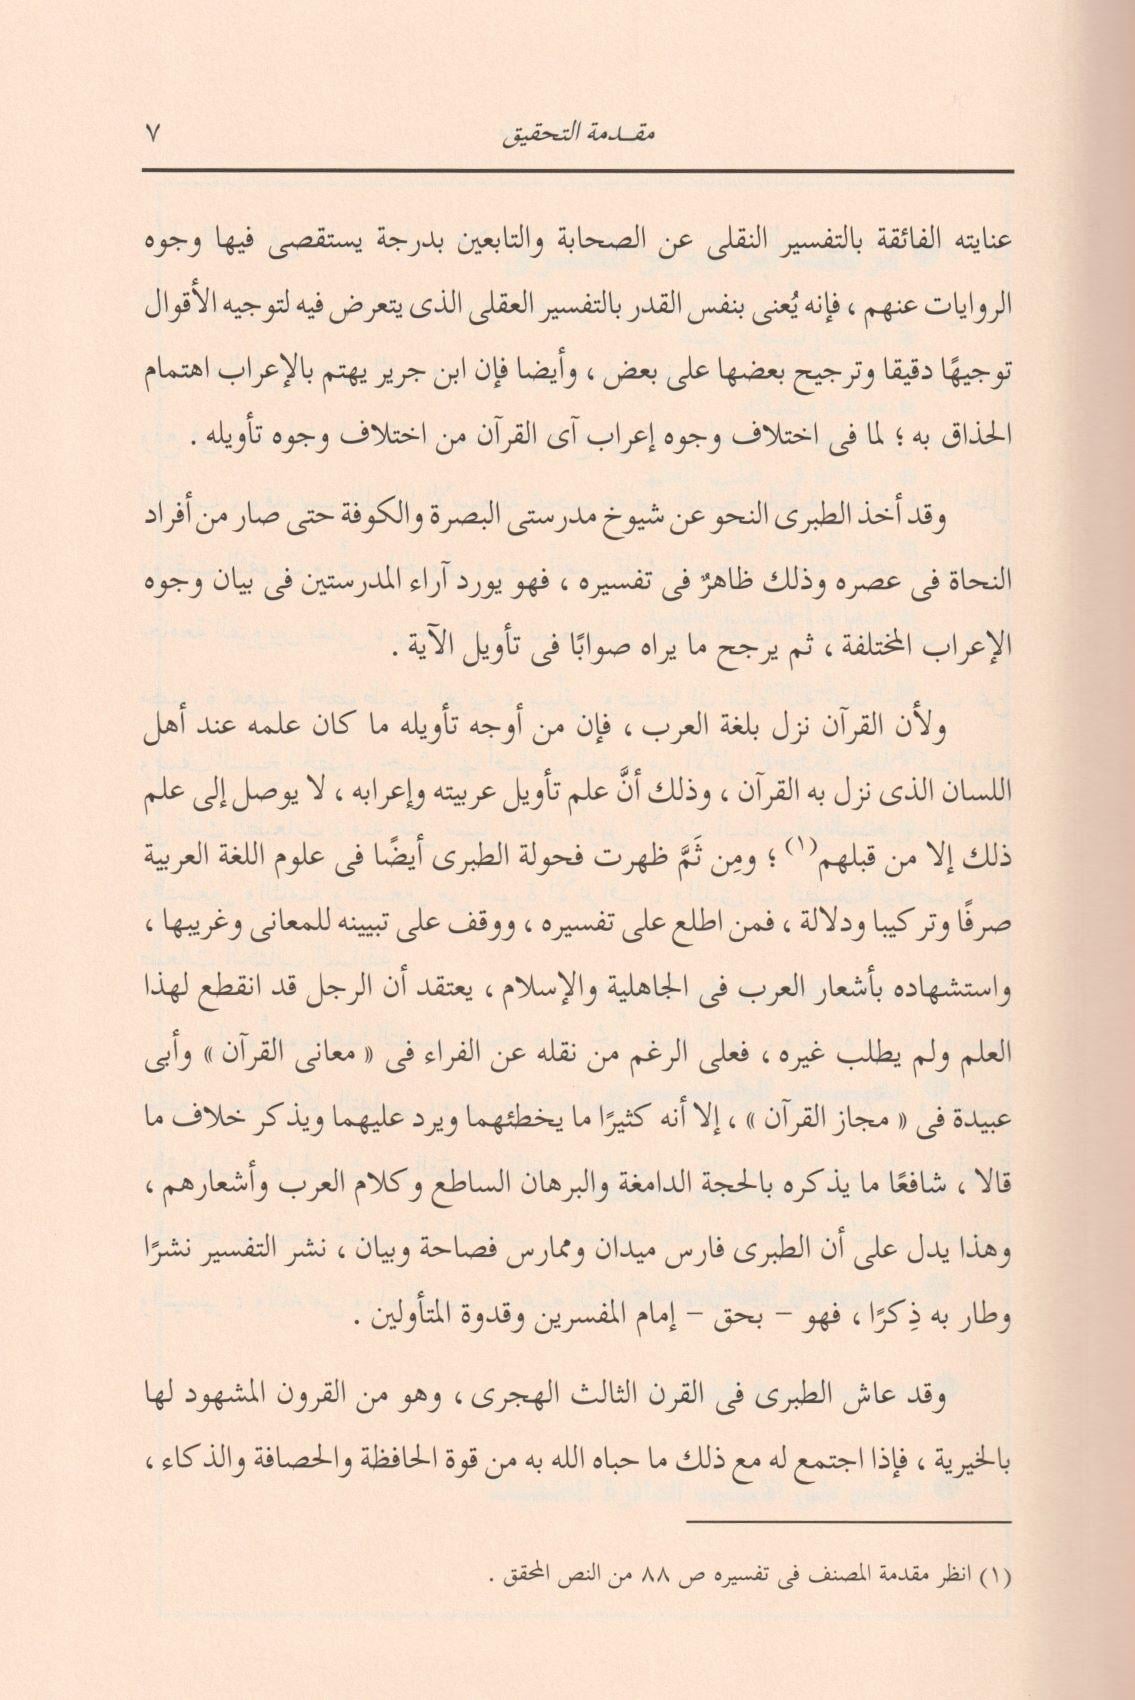 مقدمة التحقيق ٧
عنايته الفائقة بالتفسير النقلى عن الصحابة والتابعين بدرجة يستقصى فيها وجوه
الروايات عنهم ، فإنه يُعنى بنفس القدر بالتفسير العقلى الذى يتعرض فيه لتوجيه الأقوال
توجيهًا دقيقا وترجيح بعضها على بعض ، وأيضا فإن ابن جرير يهتم بالإعراب اهتمام
الحذاق به ؛ لما فى اختلاف وجوه إعراب آى القرآن من اختلاف وجوه تأويله .
وقد أخذ الطبرى النحو عن شيوخ مدرستى البصرة والكوفة حتى صار من أفراد
النحاة فى عصره وذلك ظاهرٌ فى تفسيره ، فهو يورد آراء المدرستين فى بيان وجوه
الإعراب المختلفة ، ثم يرجح ما يراه صوابًا فى تأويل الآية .
ولأن القرآن نزل بلغة العرب ، فإن من أوجه تأويله ما كان علمه عند أهل
اللسان الذى نزل به القرآن ، وذلك أنَّ علم تأويل عربيته وإعرابه ، لا يوصل إلى علم
ذلك إلا من قبلهم(١) ؛ ومِن ثَمَّ ظهرت فحولة الطبرى أيضًا فى علوم اللغة العربية
صرفًا وتركيبا ودلالة ، فمن اطلع على تفسيره ، ووقف على تبيينه للمعانى وغريبها ،
واستشهاده بأشعار العرب فى الجاهلية والإسلام ، يعتقد أن الرجل قد انقطع لهذا
العلم ولم يطلب غيره ، فعلى الرغم من نقله عن الفراء فى « معانى القرآن » وأبى
عبيدة فى « مجاز القرآن » ، إلا أنه كثيرًا ما يخطئهما ويرد عليهما ويذكر خلاف ما
قالا ، شافعًا ما يذكره بالحجة الدامغة والبرهان الساطع وكلام العرب وأشعارهم ،
وهذا يدل على أن الطبرى فارس ميدان وممارس فصاحة وبيان ، نشر التفسير نشرًا
وطار به ذِكرًا ، فهو – بحق – إمام المفسرين وقدوة المتأولين .
وقد عاش الطبرى فى القرن الثالث الهجرى ، وهو من القرون المشهود لها
بالخيرية ، فإذا اجتمع له مع ذلك ما حباه الله به من قوة الحافظة والحصافة والذكاء ،
(١) انظر مقدمة المصنف فى تفسيره ص ٨٨ من النص المحقق .